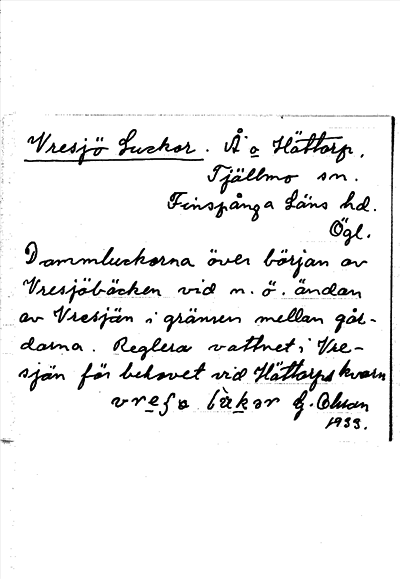 Vresjö Luckor. Å o Hättorp.
Tjällmo sn.
Finspånga Läns hd.
Ögl.
Dammluckorna över början av
Vresjöbäcken vid n. ö. ändan
av Vresjön i gränsen mellan går-
darna. Reglera vattnet i Vre-
sjön för behovet vid Hättorps kvarn
G. Olson
1933.